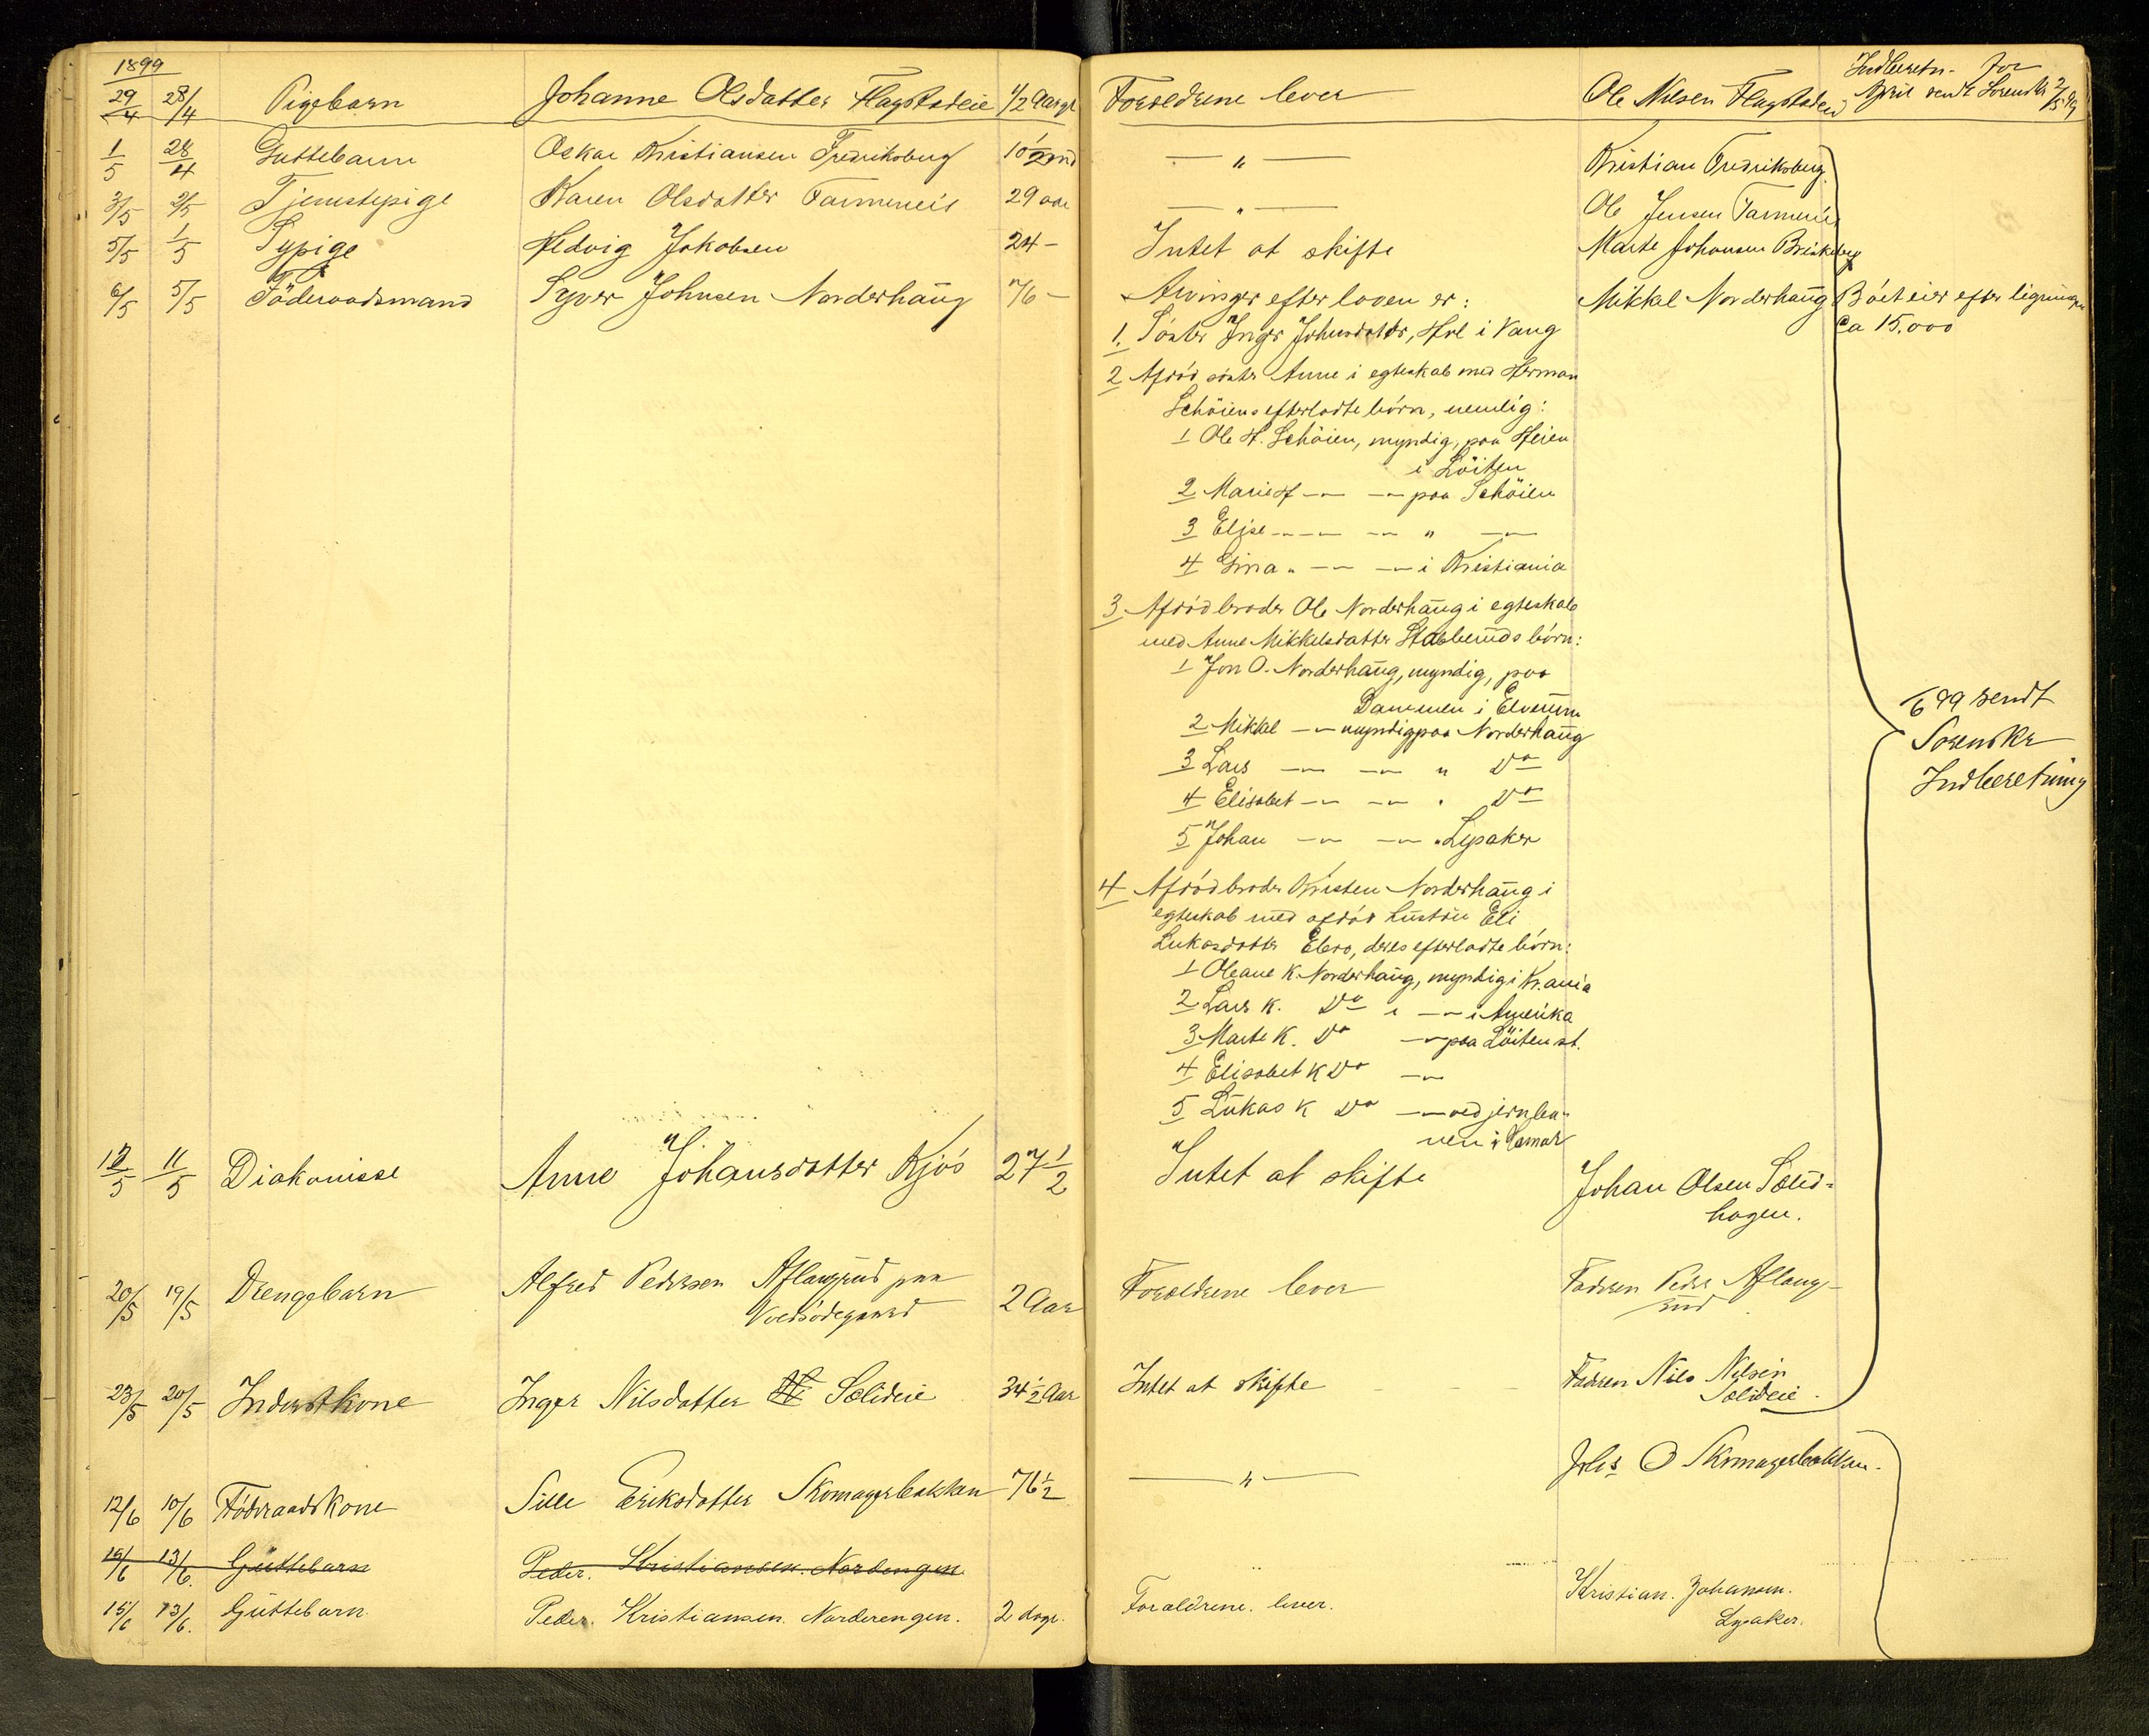 1899
29/4 28/4 Pigebarn Johanne Olsdatter Flagstadeie 1/2 Aargl Forældrene lever Ole Nilsen Flagstadeie Indberetn. for
April sendt Sorenskr 2/5 99
1/5 28/4 Guttebarn Oskar Kristiansen Fredriksberg 10 1/2 md — " — Kristian Fredriksberg
3/5 2/5 Tjenstepige Karen Olsdatter Farmereie 29 aar — " — Ole Jensen Farmereie
5/5 1/5 Sypige Hedvig Jakobsen 24 — Intet at skifte Marte Johansen Brinkeberg
6/5 5/5 Föderaadsmand Syver Johnsen Norderhaug 76 — Arvinger efter loven er: Mikkel Norderhaug Bóet eier efter ligningen
ca 15.000
1. Sóster Inger Johnsdatter, Hol i Vang
2 Afdód sóster Anne i egteskab med Herman
Schöiens efterladte bórn, nemlig:
1 Ole H. Schöien, myndig, paa Heien
i Löiten
2 Marie H — — paa Schöien
3 Elise — — — " —
4 Gina " — — i Kristiania
3 Afdód broder Ole Norderhaug i egteskab
med Anne Mikkelsdatter Stabberuds bórn:
1 Jon O. Norderhaug, myndig, paa
Dammen i Elverum
2 Mikkel — myndig paa Norderhaug
3 Lars — — " Do
4 Elisabet — — " Do
5 Johan — — " Lysaker
699 sendt
Sorenskr
Indberetning
4 Afdód broder Kristen Norderhaug i
egteskab med afdód hustru Eli
Lukasdatter Ebro, deres efterladte bórn:
1 Oleane K. Norderhaug, myndig i Kr.ania
2 Lars K. Do — i Amerika
3 Marte K. Do — paa Löiten st.
4 Elisabet K Do —
5 Lukas K Do — ved jernba-
nen i Hamar
12/5 11/5 Diakonisse Anne Johansdatter Kjós 27 1/2 Intet at skifte Johan Olsen Sælid-
hagen.
20/5 19/5 Drengebarn Alfred Pedersen Aflangrud paa
Voldsödegaard 2 Aar Forældrene lever Faderen Peder Aflang-
rud
23/5 20/5 Inderstkone Inger Nilsdatter Sælideie 34 1/2 Aar Intet at skifte Faderen Nils Nilsen
Sælideie
12/6 10/6 Föderaadskone Sille Eriksdatter Skomagerbakken 76 1/2 — " — Johs O Skomagerbakken.
15/6 13/6. Guttebarn Peder. Kristiansen. Nordengen.
15/6 13/6. Guttebarn. Peder. Kristiansen. Norderengen. 2 dage. Forældrene. lever. Kristian. Johansen.
Lysaker.